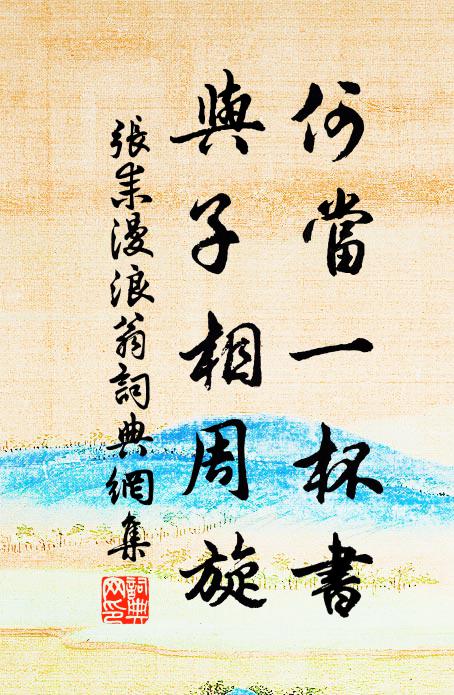 何當一杯書
與子相周旋
張耒漫浪翁詞典網集
詞典